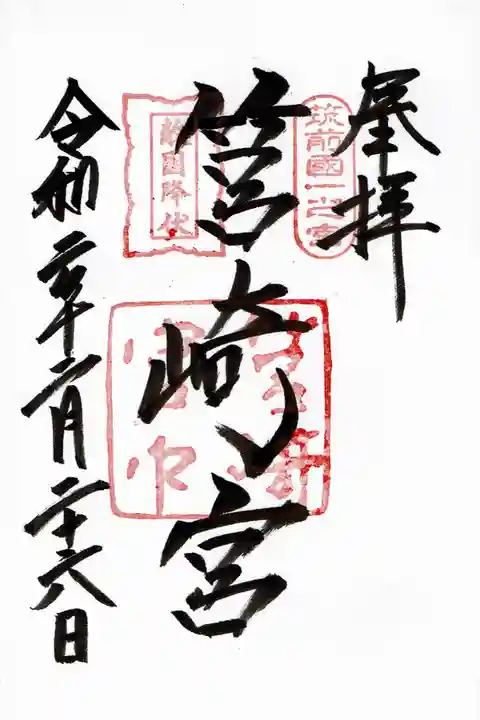 奉拝
筑前國一之宮
筥崎宮
敵国降伏
筥崎
宮印
令和二年二月二十六日